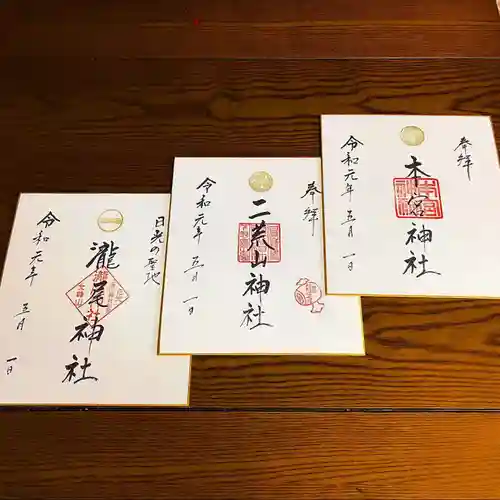 奉拝
本宮神社
令和元年 五月 一日
奉拝
二荒山神社
令和元年 五月 一日
日光の聖地
瀧尾神社
令和元年 五月 一日